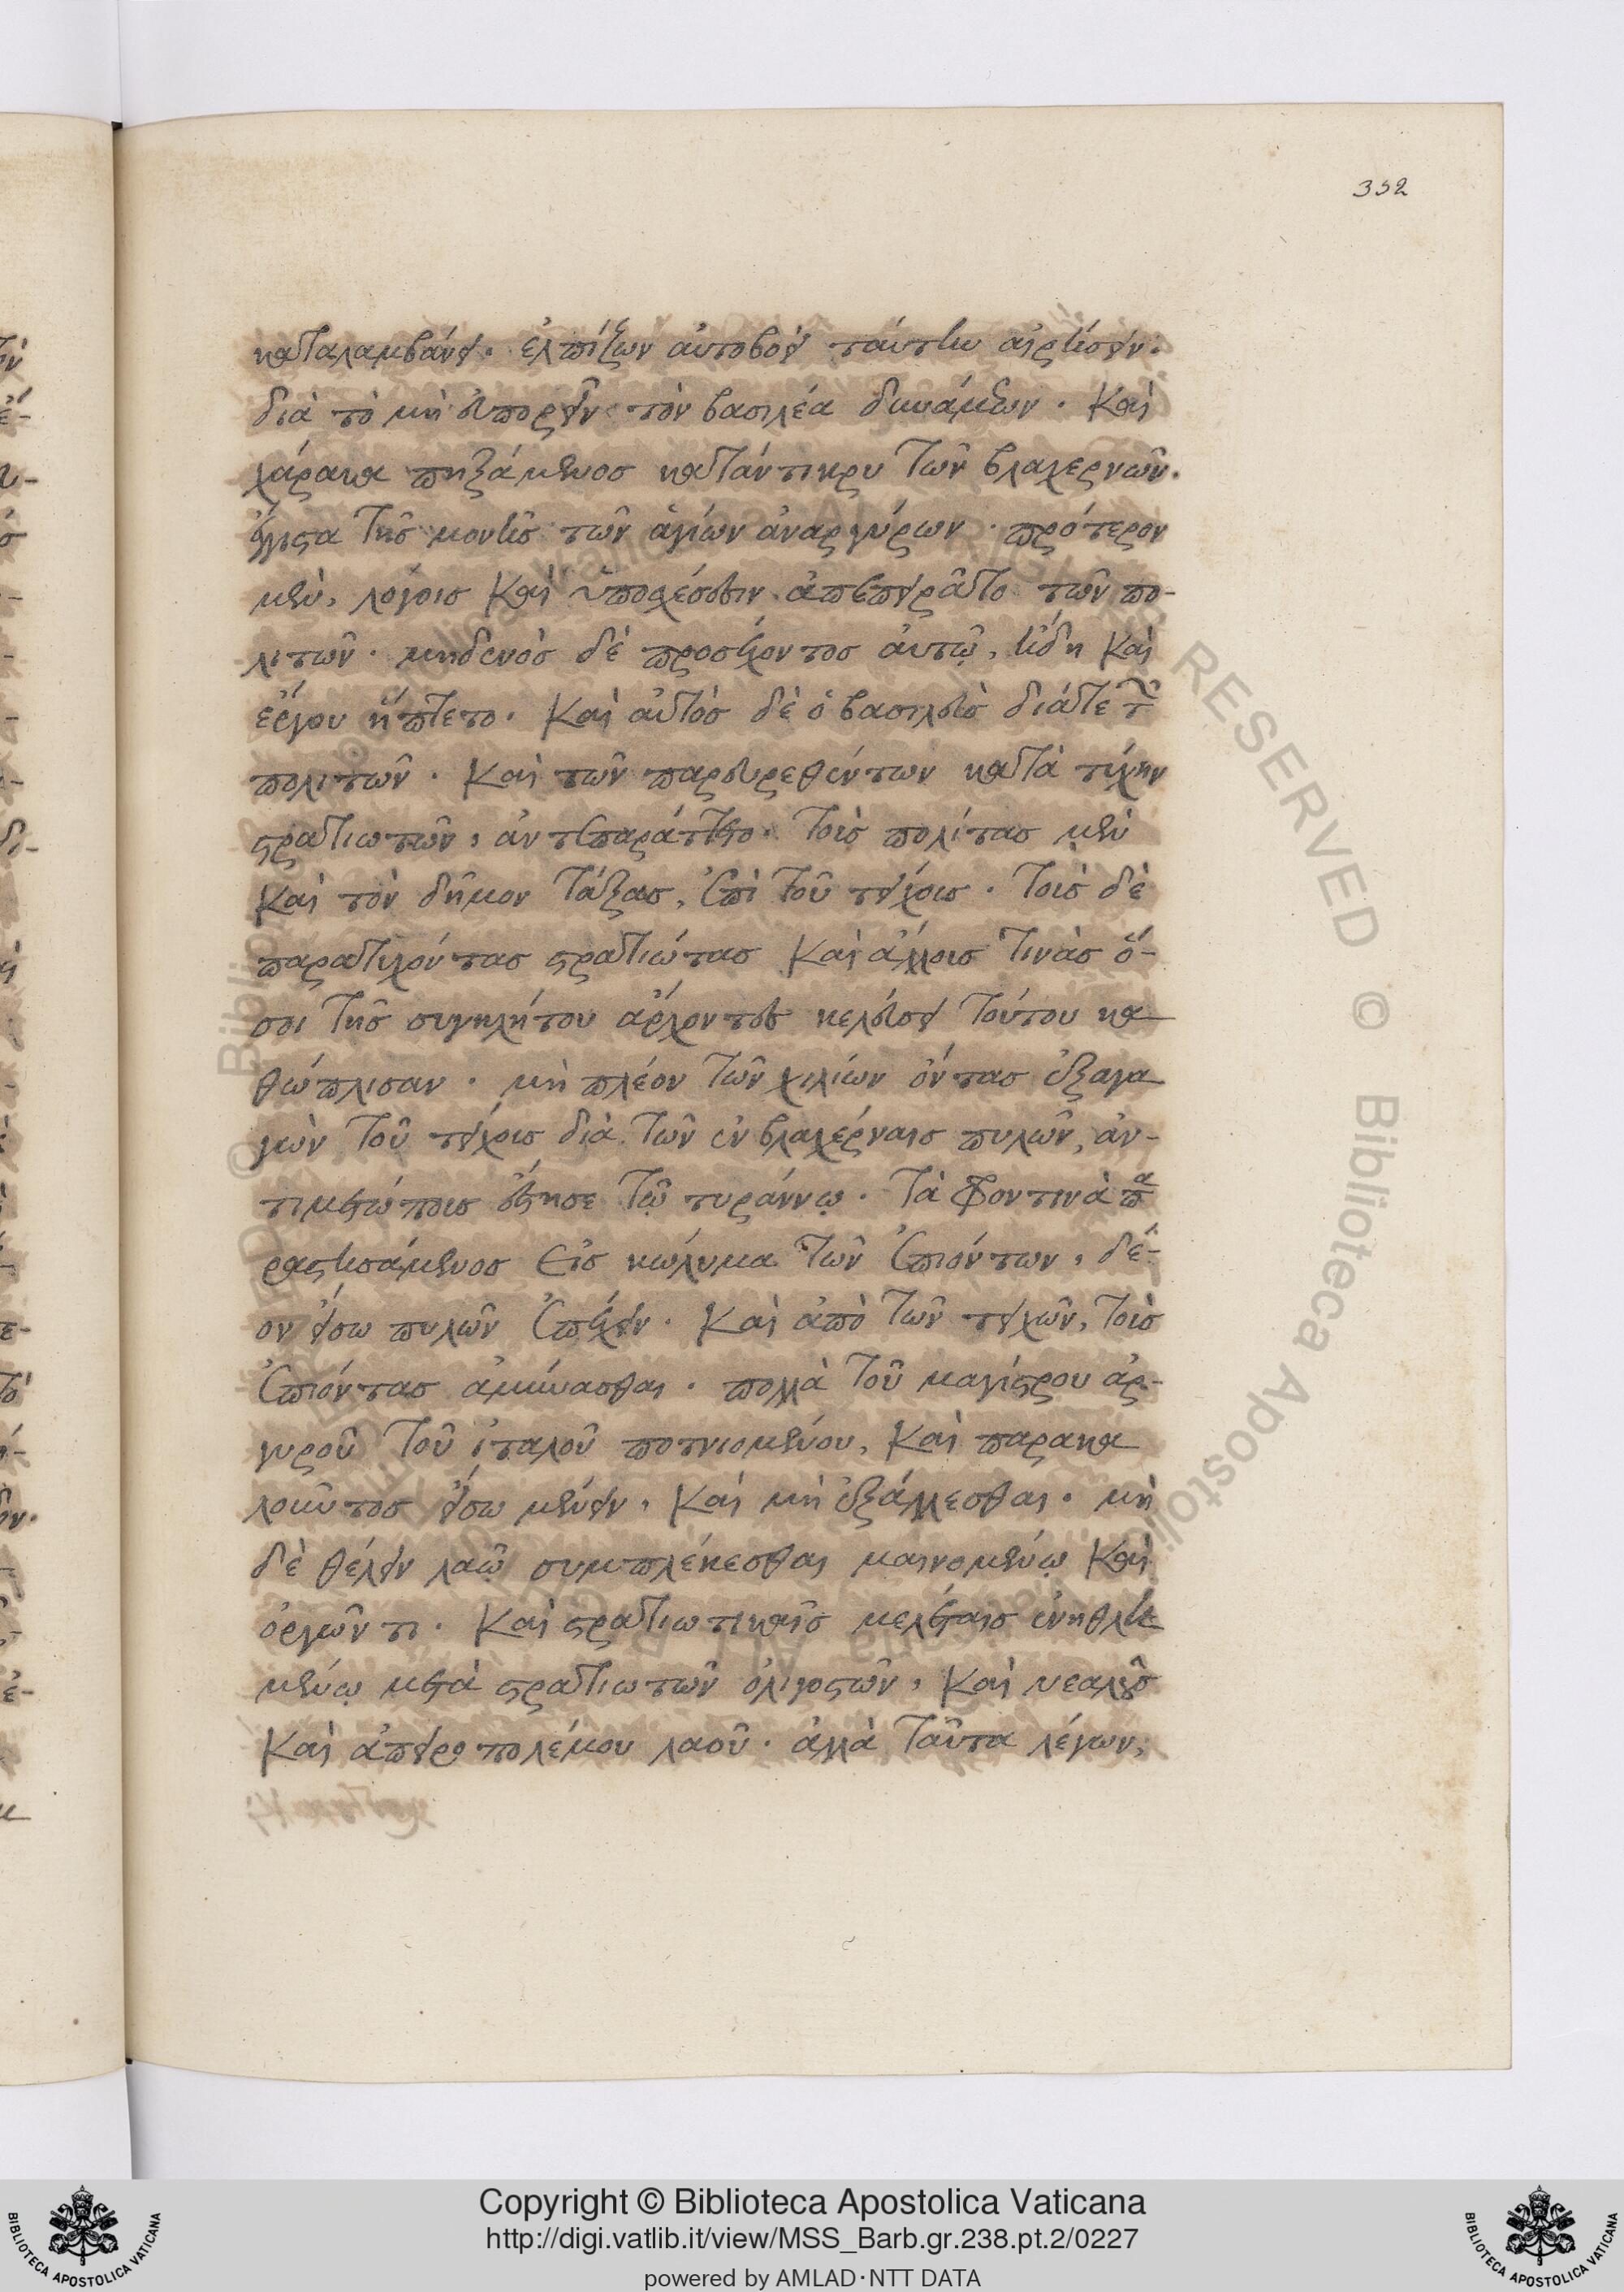 352
καταλαμβάνει. ἐλπίζων αὐτοβοεὶ ταύτην αἱρήσειν.
διὰ τὸ μὴ εὐπορεῖν τὸν βασιλέα δυνάμεων. Καὶ
χάρακα πηξάμενος κατάντικρυ τῶν βλαχερνῶν.
ἔγγιστα τῆς μονῆς τῶν ἁγίων ἀναργύρων. πρότερον
μὲν, λόγοις καὶ ὑποσχέσεσιν ἀπεπειρᾶτο τῶν πο-
λιτῶν. μηδενὸς δὲ προσέχοντος αὐτῷ, ἤδη καὶ
ἔργου ἥπτετο. Καὶ αὐτὸς δὲ ὁ βασιλεὺς διάτε τῶν
πολιτῶν. Καὶ τῶν παρευρεθέντων κατὰ τύχην
στρατιωτῶν, ἀντιπαράττετο. τοὺς πολίτας μὲν
Καὶ τὸν δῆμον τάξας, ἐπὶ τοῦ τείχους. τοὺς δὲ
παρατυχόντας στρατιώτας Καὶ ἄλλους τινὰς ὅ-
σοι τῆς συγκλήτου ἄρχοντες κελεύσει τούτου κα
θώπλισαν. μὴ πλέον τῶν χιλίων ὄντας ἐξαγα
γὼν τοῦ τείχους διὰ τῶν ἐν βλαχέρναις πυλῶν, ἀν-
τιμετώπους ἔστησε τῷ τυράννῳ. τὰ Φοντινὰ πα
ραστησάμενος εἰς κώλυμα τῶν ἐπιόντων, δέ-
ον εἴσω πυλῶν ἐπέχειν. Καὶ ἀπὸ τῶν τειχῶν, τοὺς
ἐπιόντας ἀμύνασθαι. πολλὰ τοῦ μαγίστρου ἀρ-
γυροῦ τοῦ ἰταλοῦ ποτνιομένου, Καὶ παρακα
λοῦντος εἴσω μένειν, Καὶ μὴ ἐξάλλεσθαι. μὴ
δὲ θέλειν λαῷ συμπλέκεσθαι μαινομένῳ Καὶ
ὀργῶντι. Καὶ στρατιωτικαῖς μελέταις ἐνηθλη
μένῳ μετὰ στρατιωτῶν ὀλιγοστῶν, Καὶ νεαλοῦς
Καὶ ἀπείρου πολέμου λαοῦ. ἀλλὰ ταῦτα λέγων,
Copyright © Biblioteca Apostolica Vaticana
http://digi.vatlib.it/view/MSS_Barb.gr.238.pt.2/0227
powered by AMLAD·NTT DATA